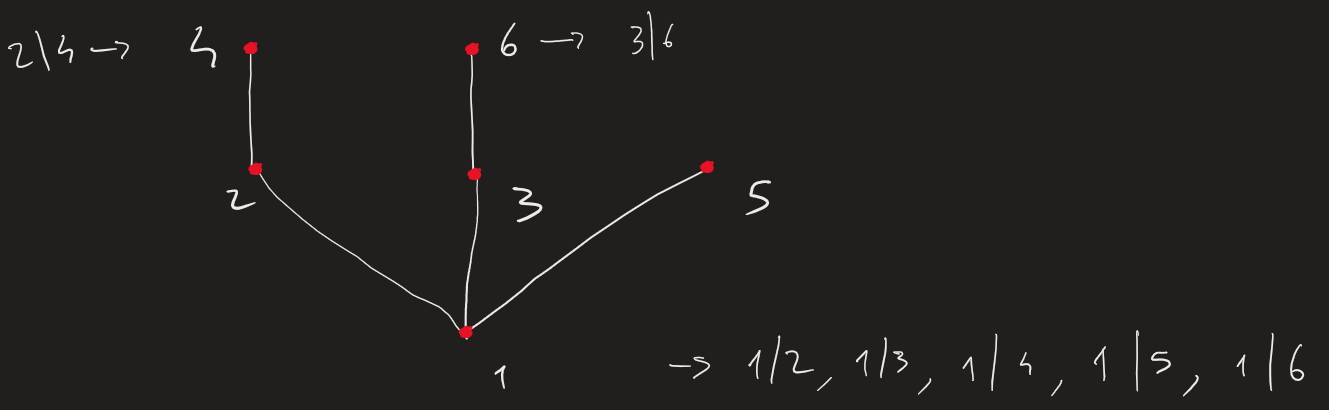 2|4 → 4 6 → 3|6
2 3 5
1 → 1/2, 1/3, 1|4, 1|5, 1|6